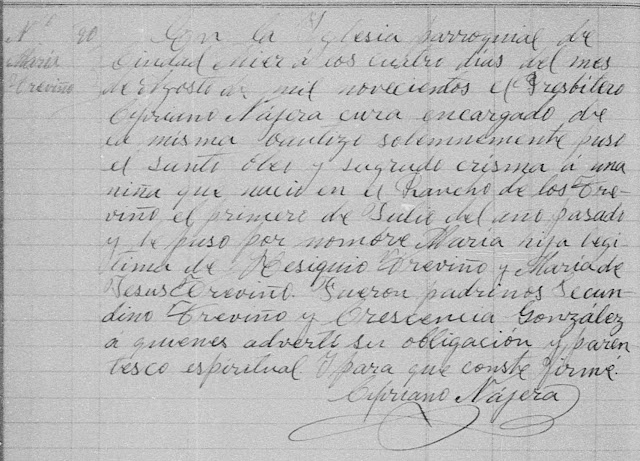 Nº 90
María
Treviño
En la Yglesia parroquial de
Ciudad Mier á los cuatro dias del mes
de Agosto de mil novecientos el Presbitero
Cipriano Nájera cura encargado de
la misma bautizo solemnemente puso
el santo óleo y sagrado crisma á una
niña que nacio en el Rancho de los Tre-
viño el primero de Julio del año pasado
y le puso por nombre María hija legi
tima de Resiguio Treviño y María de
Jesus Treviño. Fueron padrinos Secun
dino Treviño y Crescencia González
á quienes adverti su obligación y paren
tesco espiritual Y para que conste firmé.
Cipriano Nájera